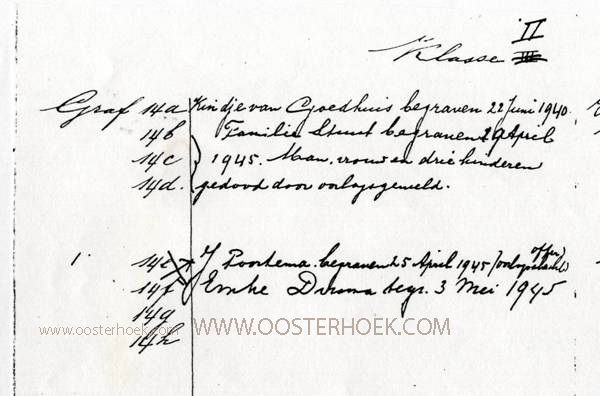 Klasse II
Graf 14a Kindje van Goedhuis begraven 22 Juni 1940.
14b Familie Stuut begraven 29 April
14c 1945. Man, vrouw en drie kinderen
14d. gedood door oorlogsgeweld.
1 14e J Poortema begraven 25 April 1945 (oorlogsslachtoffer)
14f Emke Duma begr. 3 Mei 1945
14g
14h
www.oosterhoek.com
WWW.OOSTERHOEK.COM